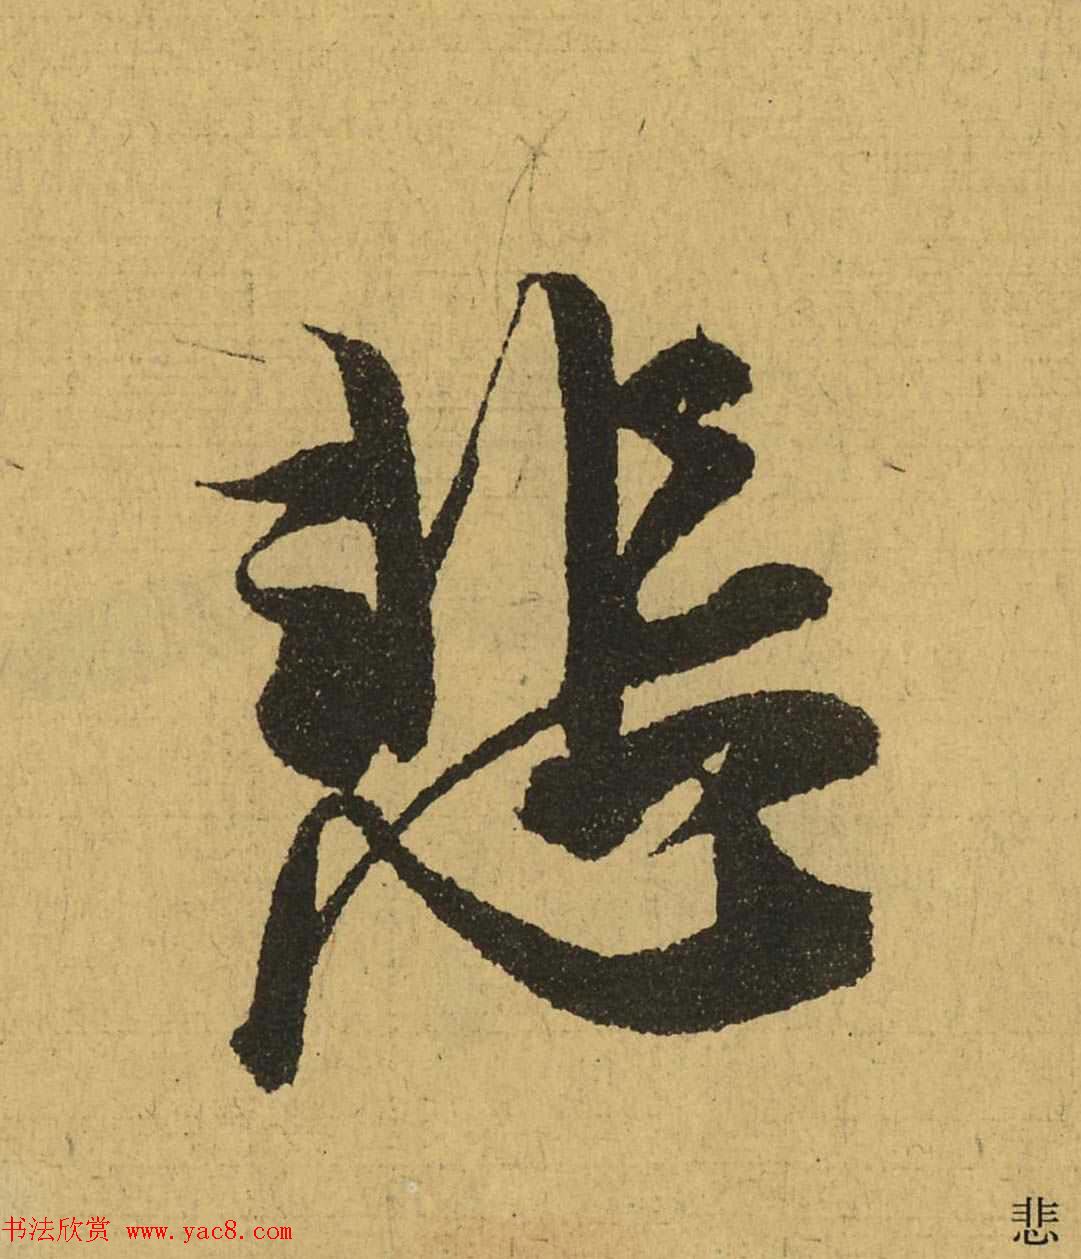 悲
书法欣赏 www.yac8.com
悲